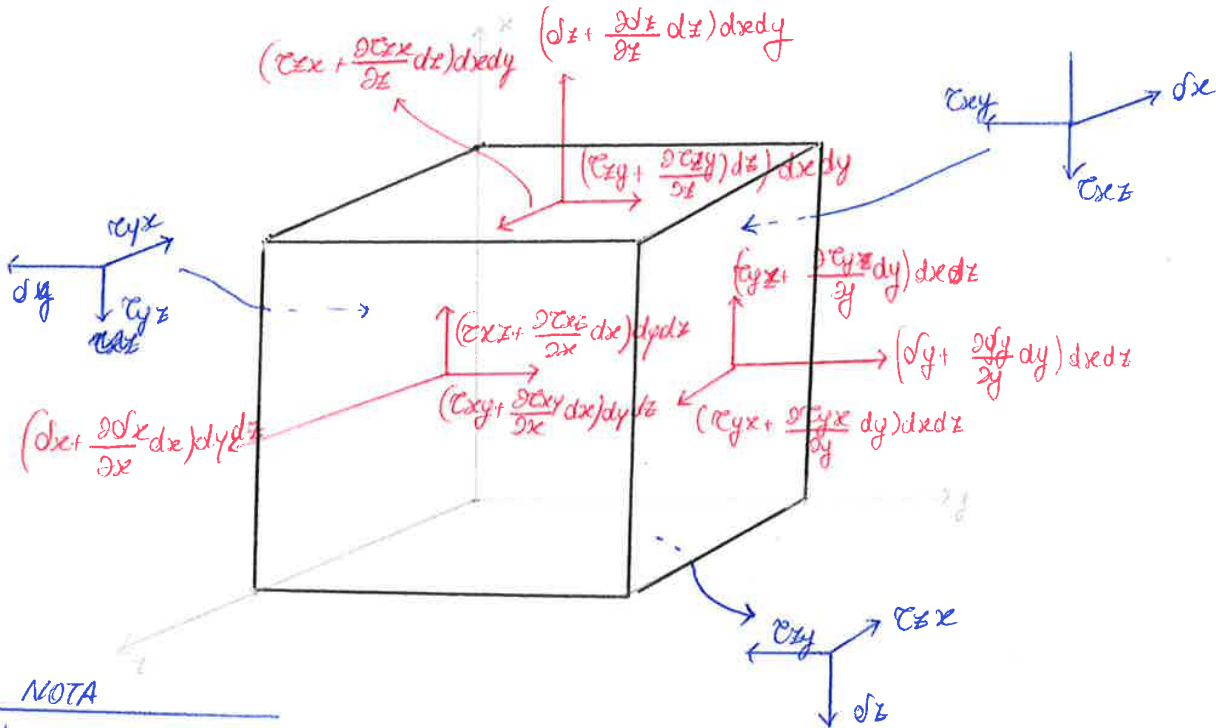 x
(τzx + ∂τzx/∂z dz) dxdy
(σz + ∂σz/∂z dz) dxdy
(τzy + ∂τzy/∂z) dz) dxdy
τxy
σx
τxz
τyx
σy
τyz
(τyz + ∂τyz/∂y dy) dxdz
(τxz + ∂τxz/∂x dx) dydz
(σy + ∂σy/∂y dy) dxdz
(τxy + ∂τxy/∂x dx) dydz
(τyx + ∂τyx/∂y dy) dxdz
(σx + ∂σx/∂x dx) dydz
y
τzy
τzx
σz
NOTA